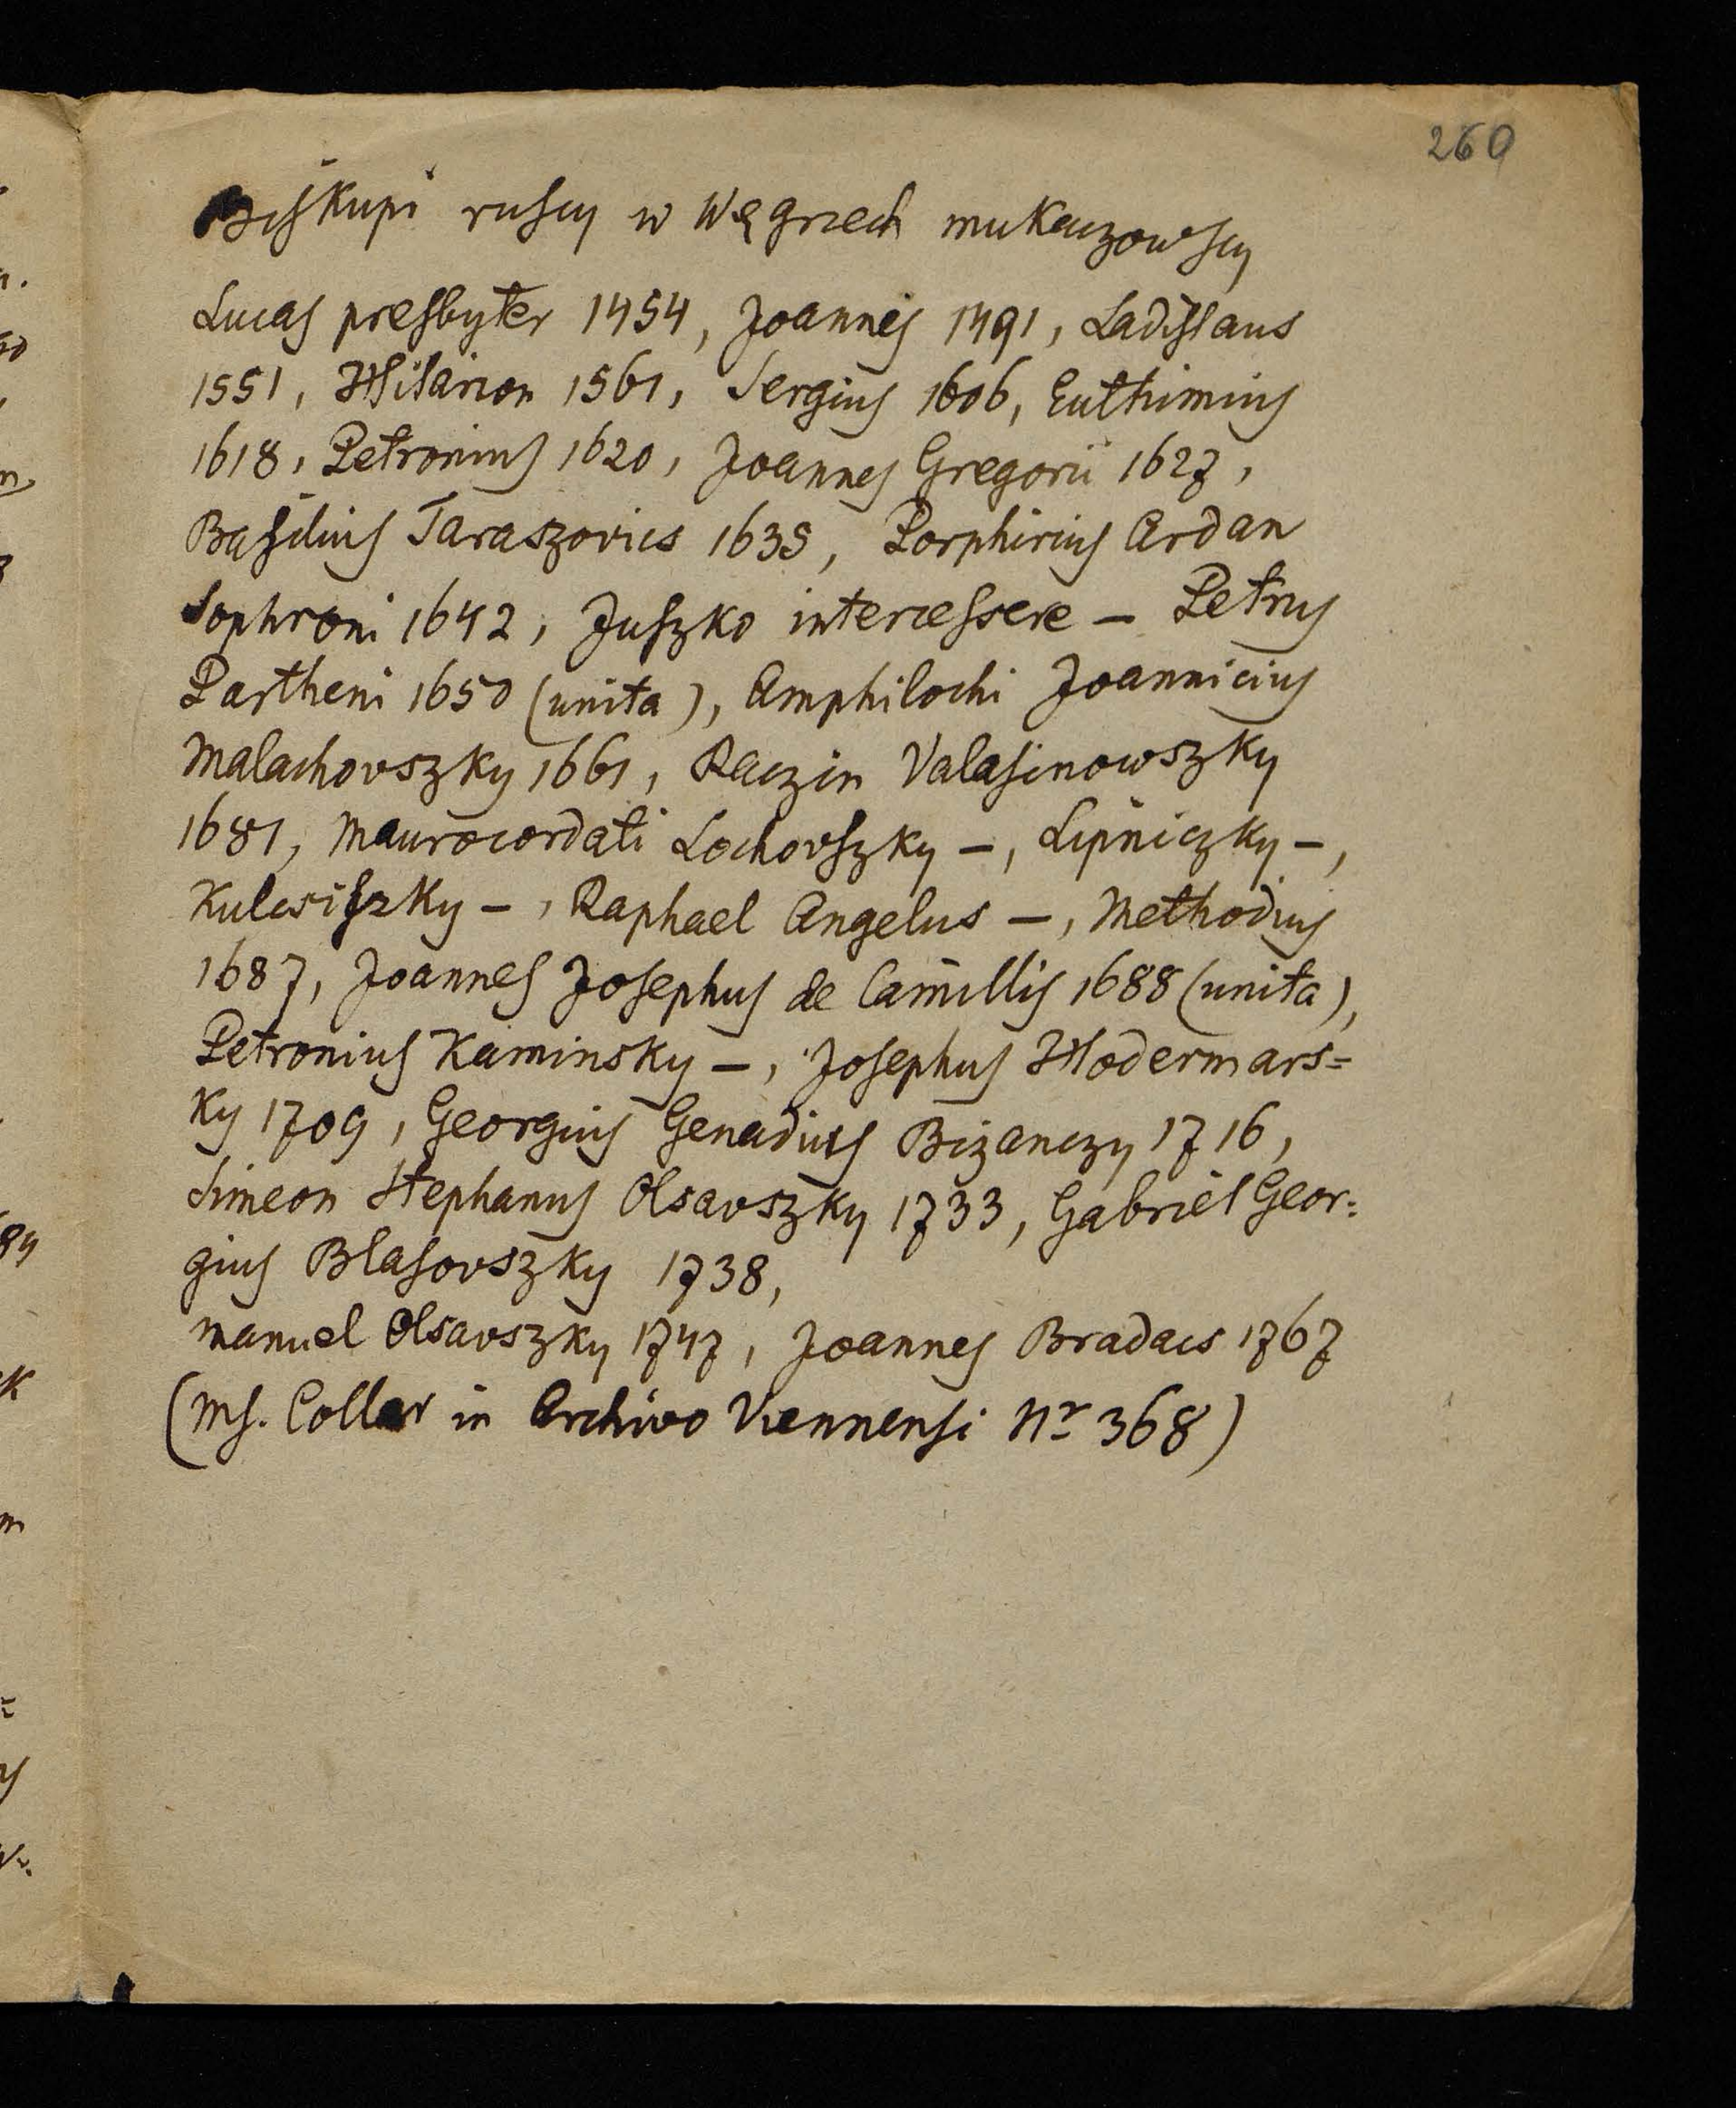 260
Biskupi ruscy w Węgrzech mukaczowscy
Lucas presbyter 1454, Joannes 1491, Ladislaus
1551, Hilarion 1561, Sergius 1606, Euthimius
1618, Petronius 1620, Joannes Gregorii 1627,
Basilius Taraszovics 1635, Porphirius Ardan
Sophroni 1642, Juszko intercessere – Petrus
Partheni 1650 (unita), Amphilochi Joannicius
Malachovszky 1661, Raczin Valasinowszky
1681, Maurocordati Lochovszky –, Lipniczky –,
Kulcsiszky –, Raphael Angelus –, Methodius
1687, Joannes Josephus de Camillis 1688 (unita),
Petronius Kaminsky –, Josephus Hodermars=
ky 1709, Georgius Genadius Bizanczy 1716,
Simeon Stephanus Olsavszky 1733, Gabriel Geor=
gius Blasovszky 1738,
Manuel Olsavszky 1747, Joannes Bradacs 1767
(Ms. Collar in Archivo Viennensi Nr 368)